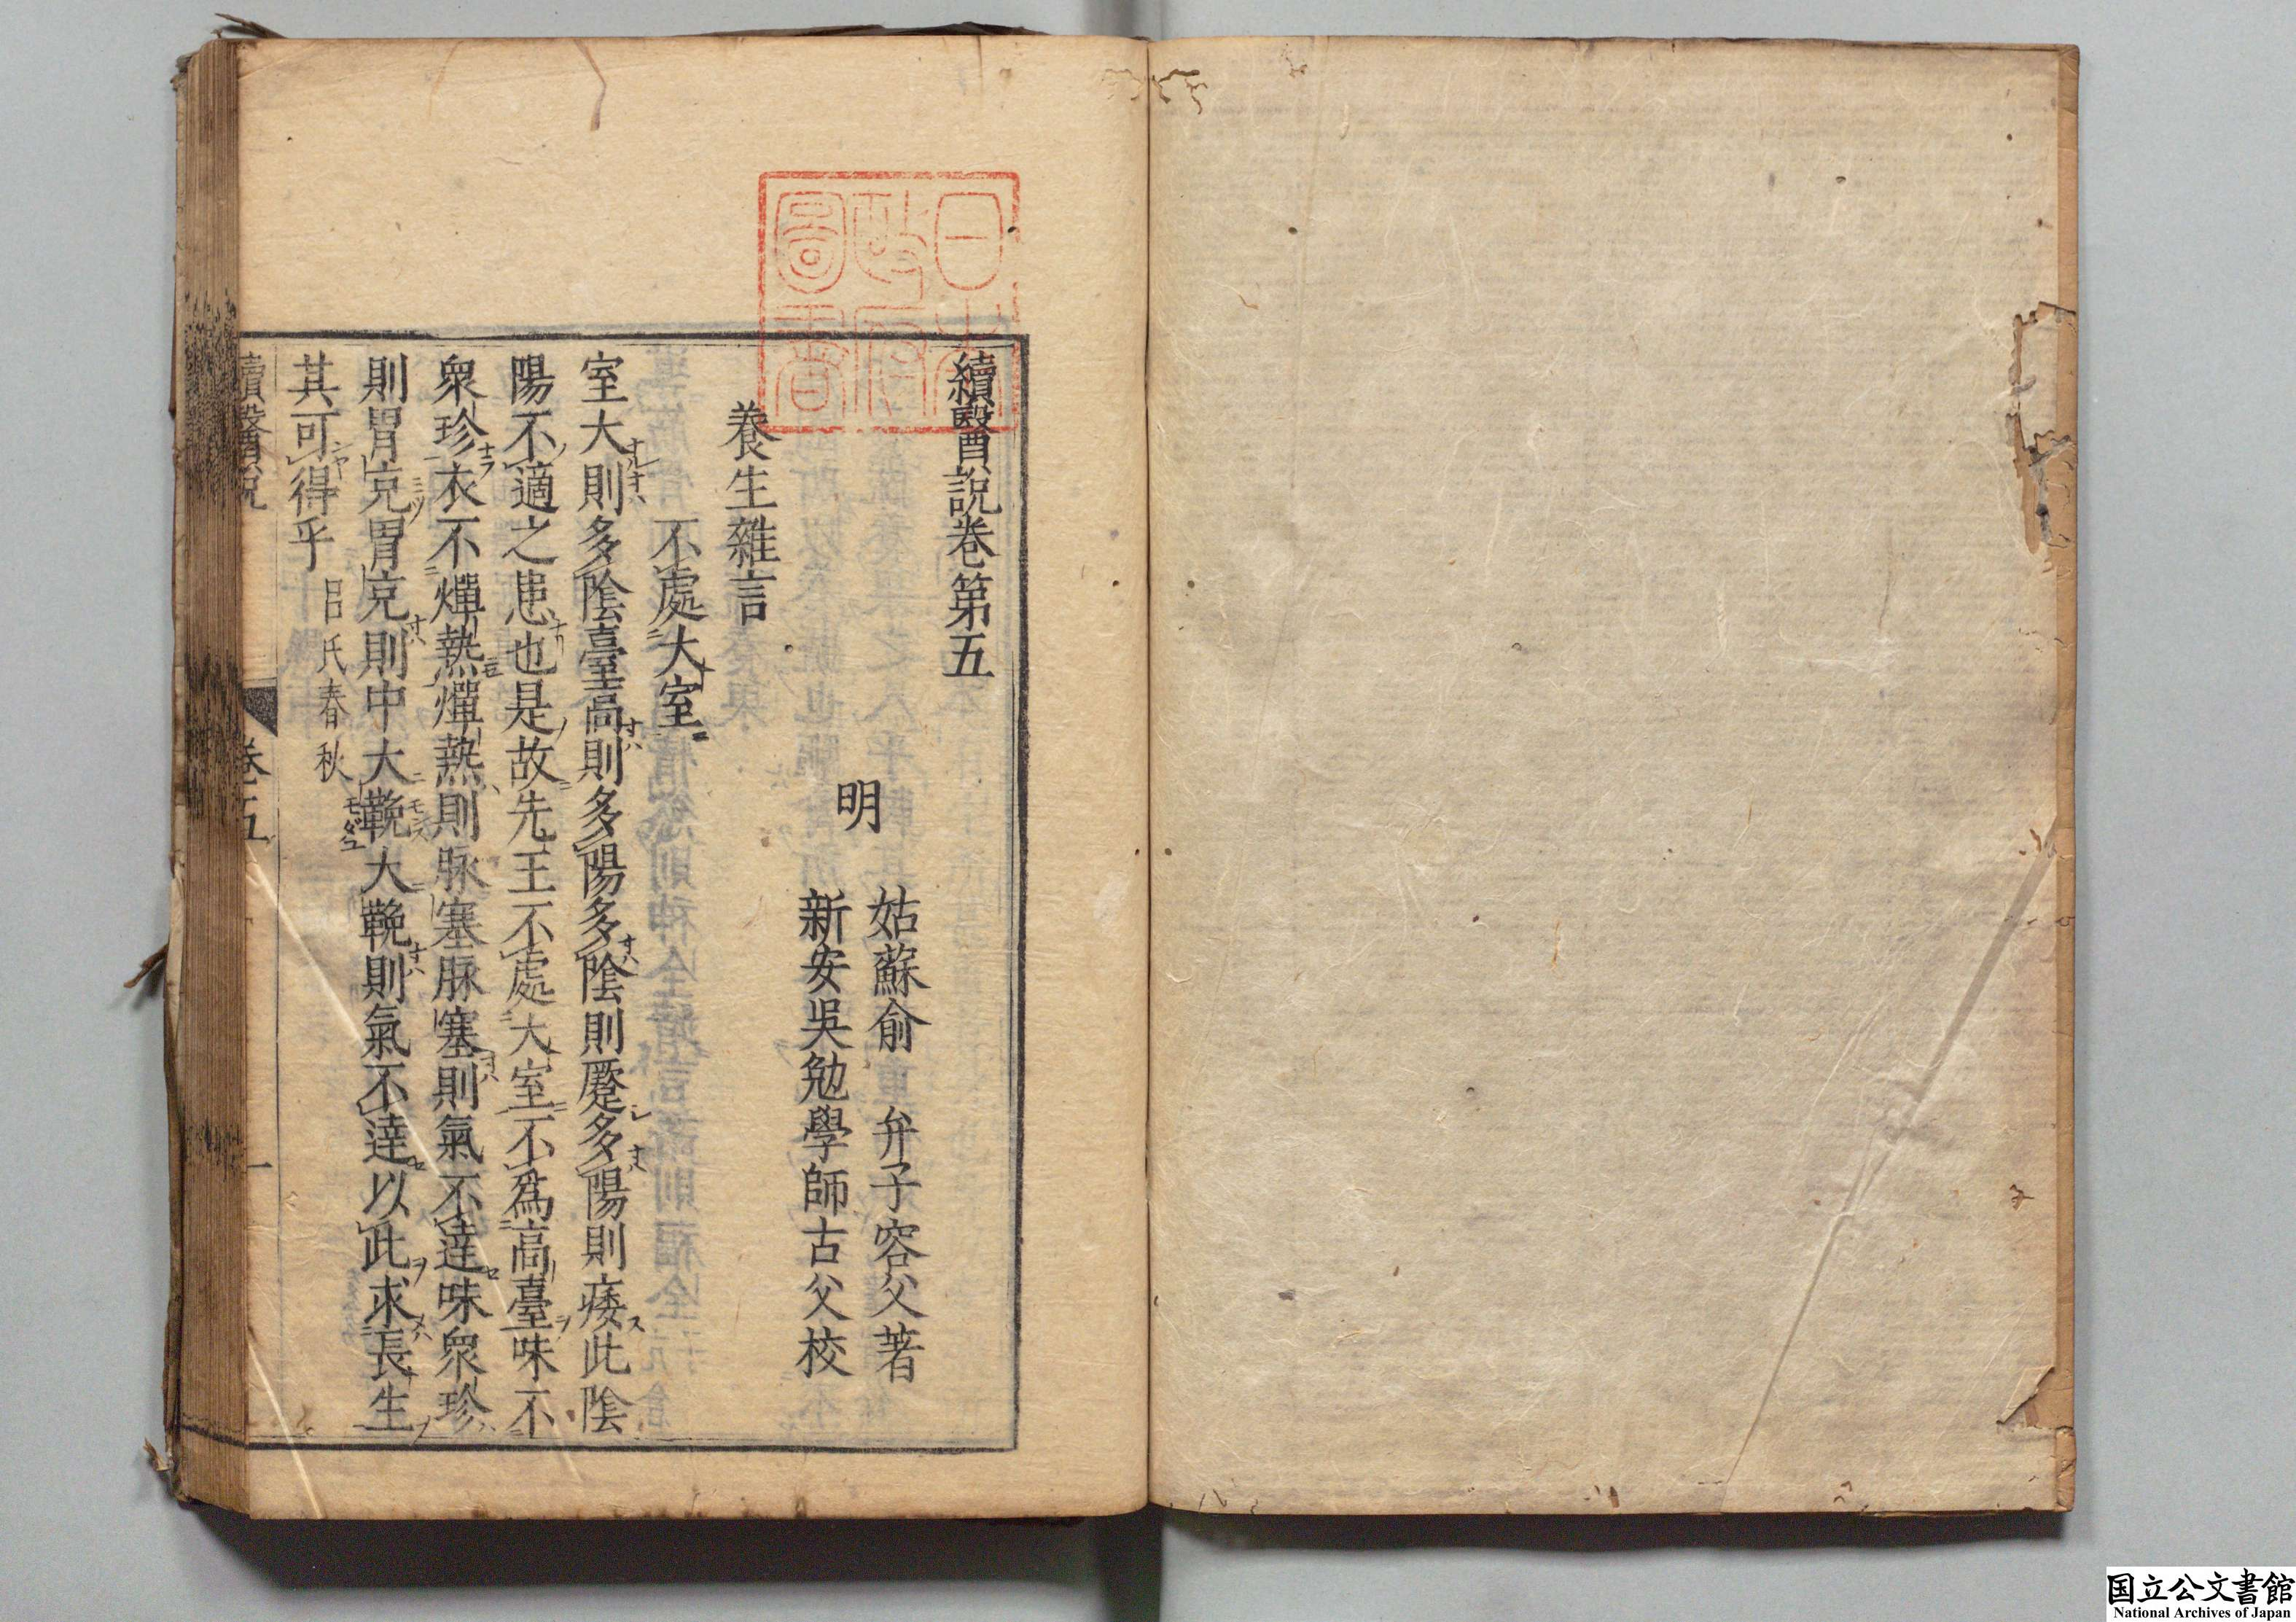 續醫說卷第五
明
姑蘇俞 弁子容父著
新安吳勉學師古父校
養生雜言
不處大室
室大則多陰臺高則多陽多陰則蹷多陽則痿此陰
陽不適之患也是故先王不處大室不爲高臺味不
衆珍衣不燀熱燀熱則脉塞脈塞則氣不達味衆珍
則胃充胃充則中大鞔大鞔則氣不達以此求長生
其可得乎 呂氏春秋
續醫說
卷五
一
日本
政府
圖書
国立公文書館
National Archives of Japan